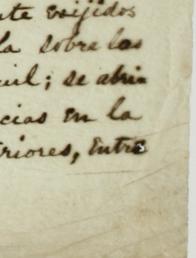 nte exijidos
la sobre los
uil; se abri-
cias en la
riores, entre